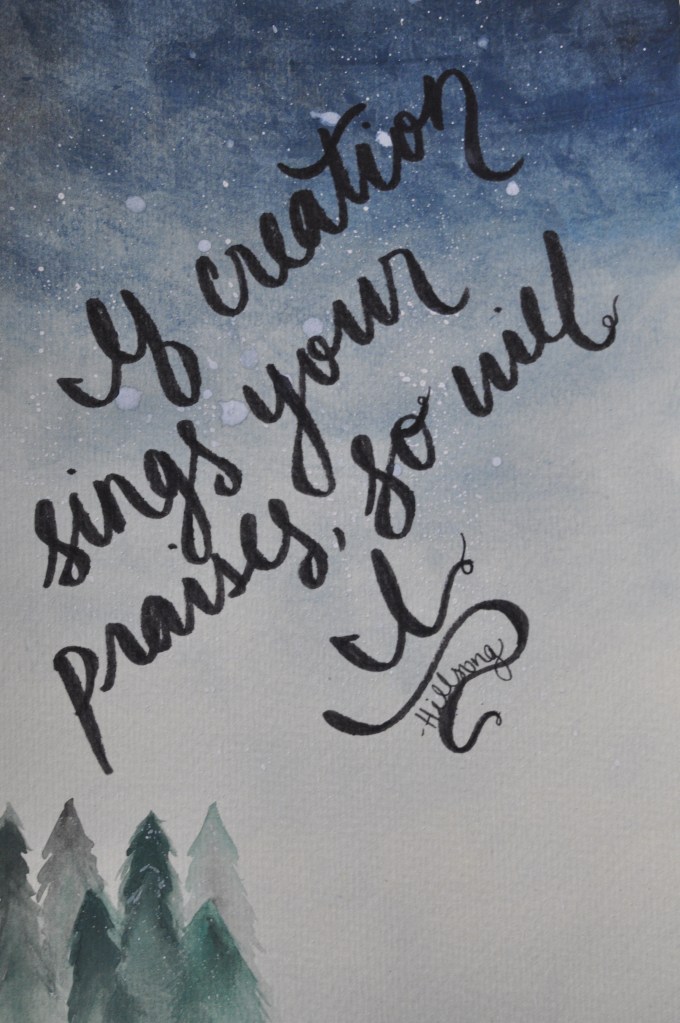 If creation
sings your
praises, so will
I
-Hillsong